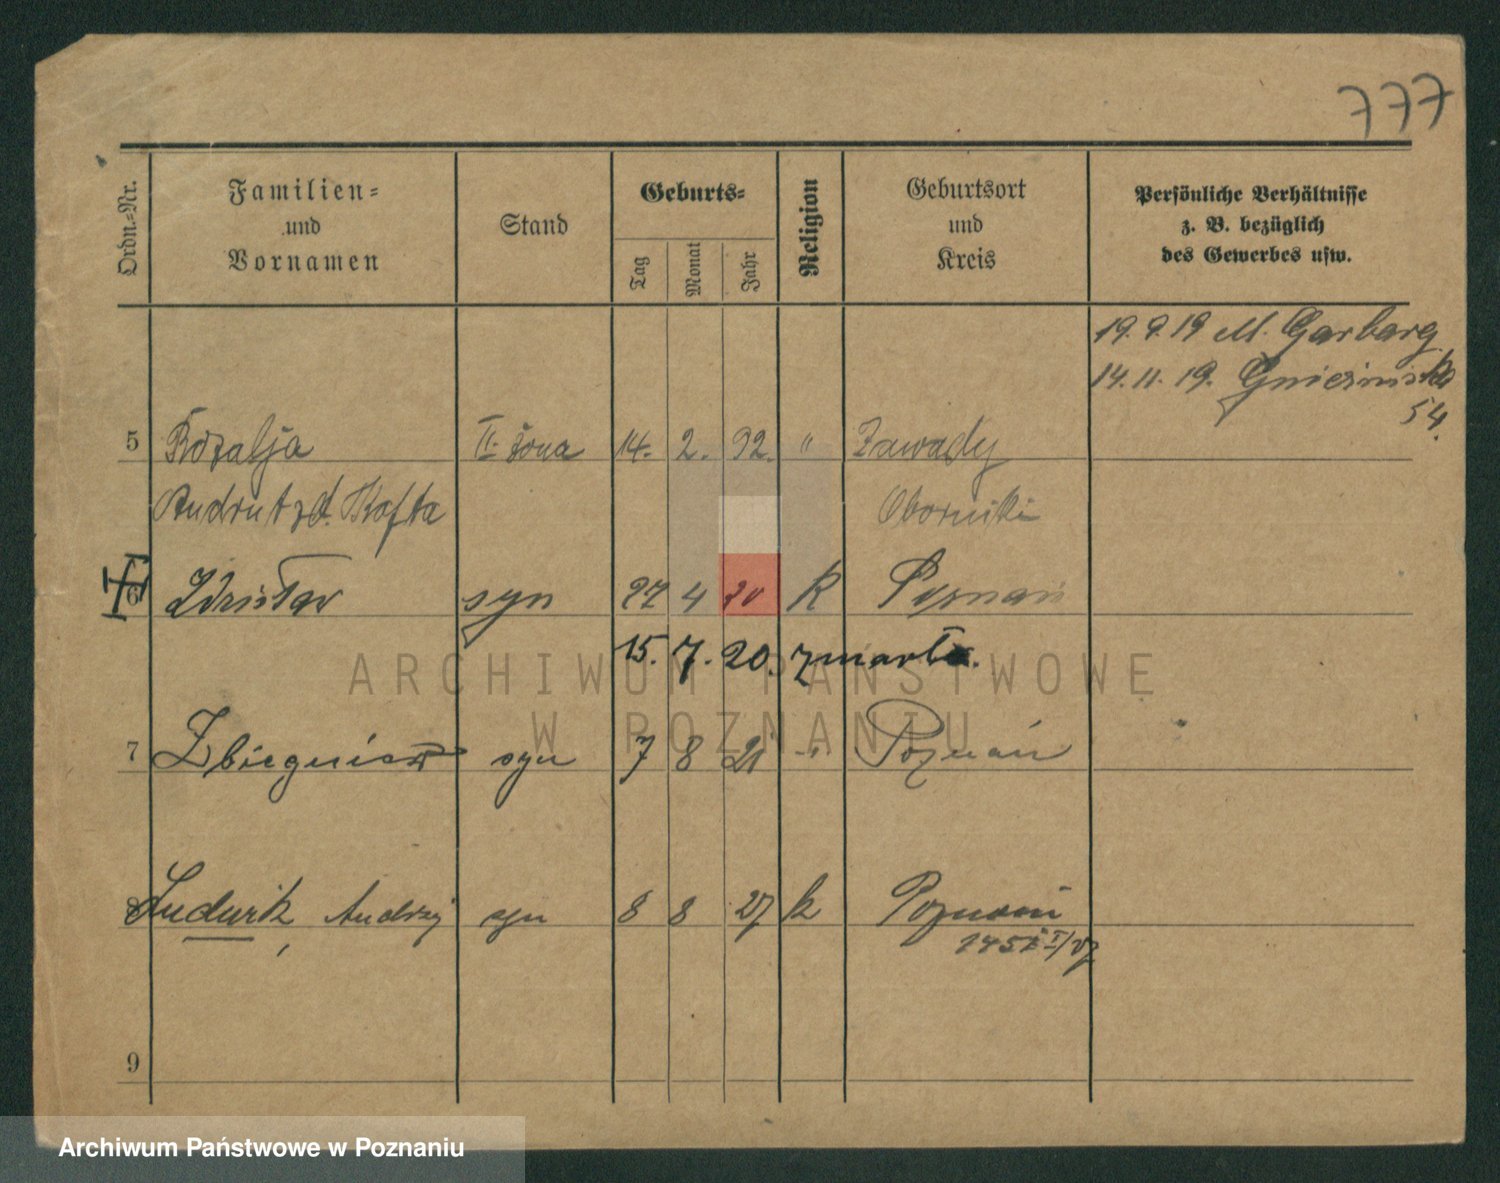 777
Ordn.=Nr.
Familien=
und
Vornamen
Stand
Geburts=
Tag
Monat
Jahr
Religion
Geburtsort
und
Kreis
Persönliche Verhältnisse
z. B. bezüglich
des Gewerbes usw.
19.9.19 M. Garbarg
14.11.19. Gnieźnińska
54.
5 Rozalja II. żona 14. 2. 92. " Zawady
Andrut z d. Kofta Obornicki
6 Zdzisław syn 27 4 20 k Poznań
15. 7. 20. zmarł.
ARCHIWUM PAŃSTWOWE
W POZNANIU
7 Zbigniew syn 7 8 21 " Poznań
8 Ludwik, Andrzej syn 8 8 27 k Poznań
9
Archiwum Państwowe w Poznaniu